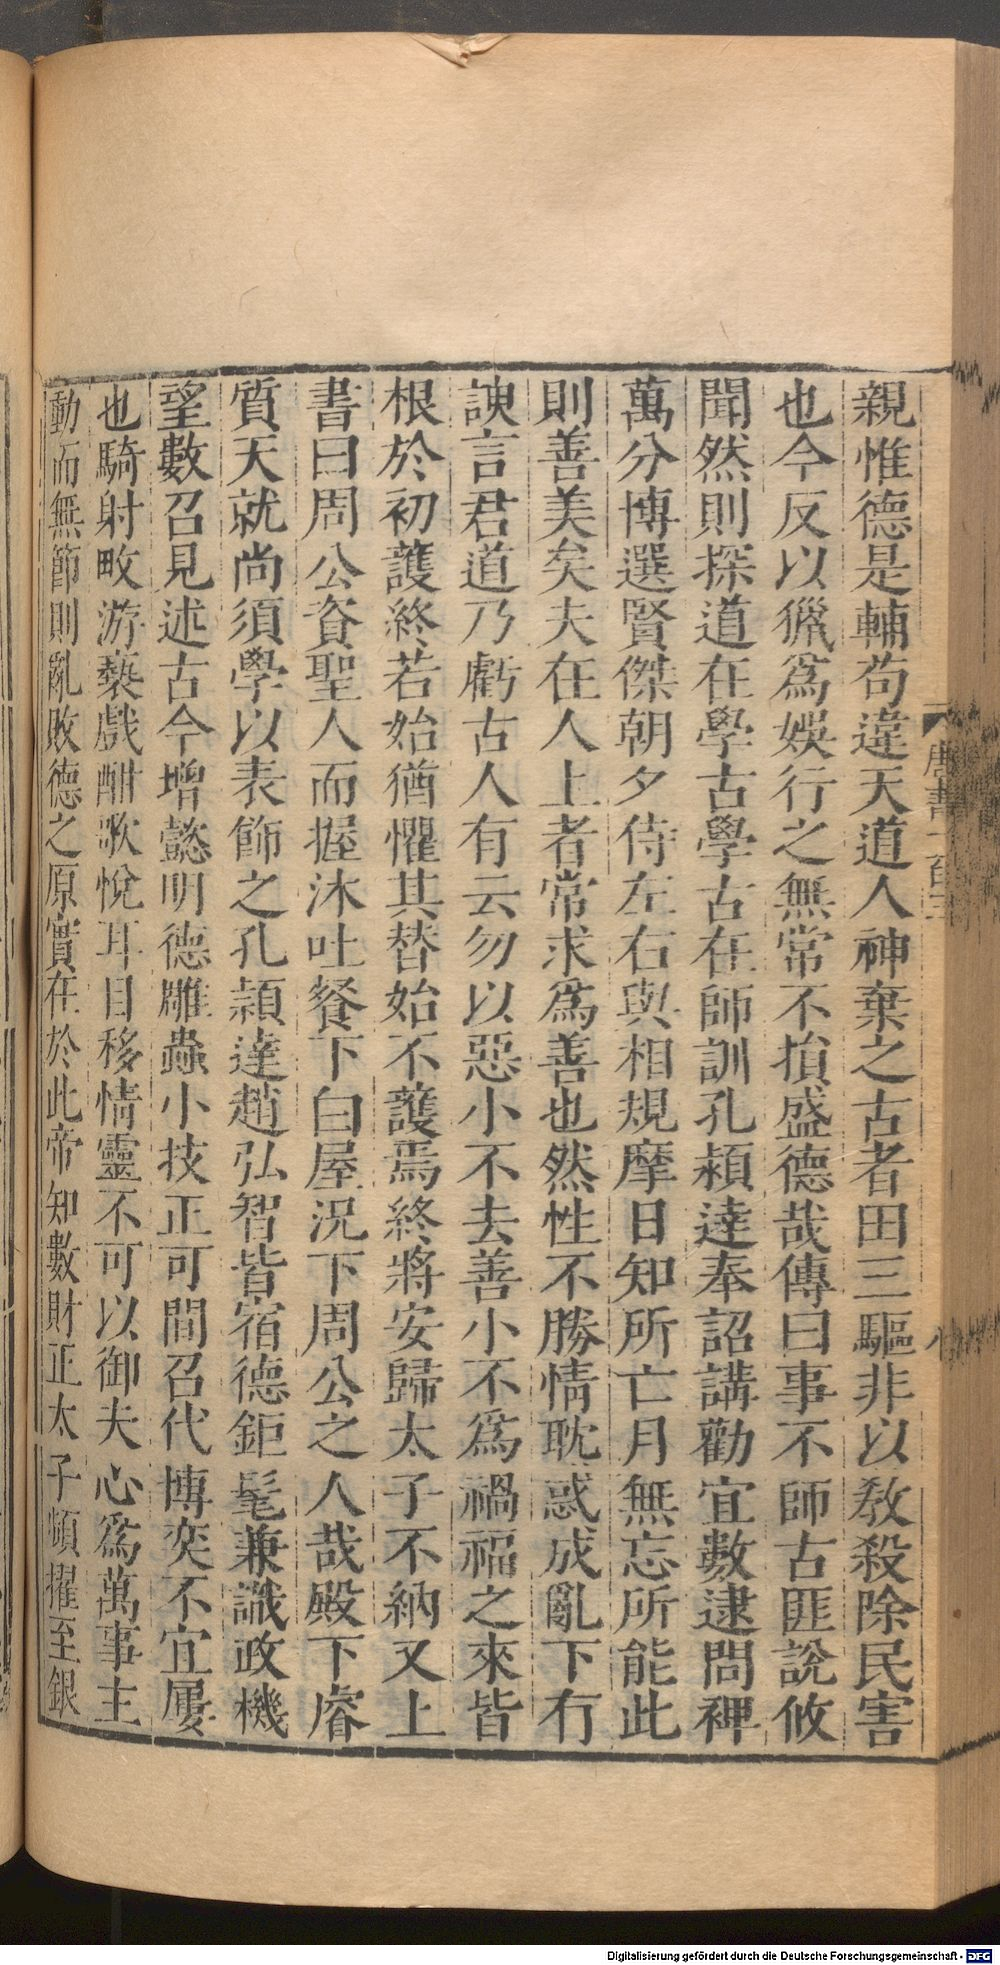 親惟德是輔苟違天道人神棄之古者田三驅非以敎殺除民害
也今反以獵爲娛行之無常不損盛德哉傳曰事不師古匪說攸
聞然則探道在學古學古在師訓孔穎達奉詔講勸宜數逮問裨
萬分博選賢傑朝夕侍左右與相規摩日知所亡月無忘所能此
則善美矣夫在人上者常求爲善也然性不勝情耽惑成亂下有
諛言君道乃虧古人有云勿以惡小不去善小不爲禍福之來皆
根於初護終若始猶懼其替始不護焉終將安歸太子不納又上
書曰周公資聖人而握沐吐餐下白屋況下周公之人哉殿下睿
質天就尚須學以表飾之孔穎達趙弘智皆宿德鉅髦兼識政機
望數召見述古今增懿明德雕蟲小技正可間召代博奕不宜屢
也騎射畋游褻戲酣歌悅耳目移情靈不可以御夫心爲萬事主
動而無節則亂敗德之原實在於此帝知數財正太子頻擢至銀
唐書一百三
八
Digitalisierung gefördert durch die Deutsche Forschungsgemeinschaft - DFG